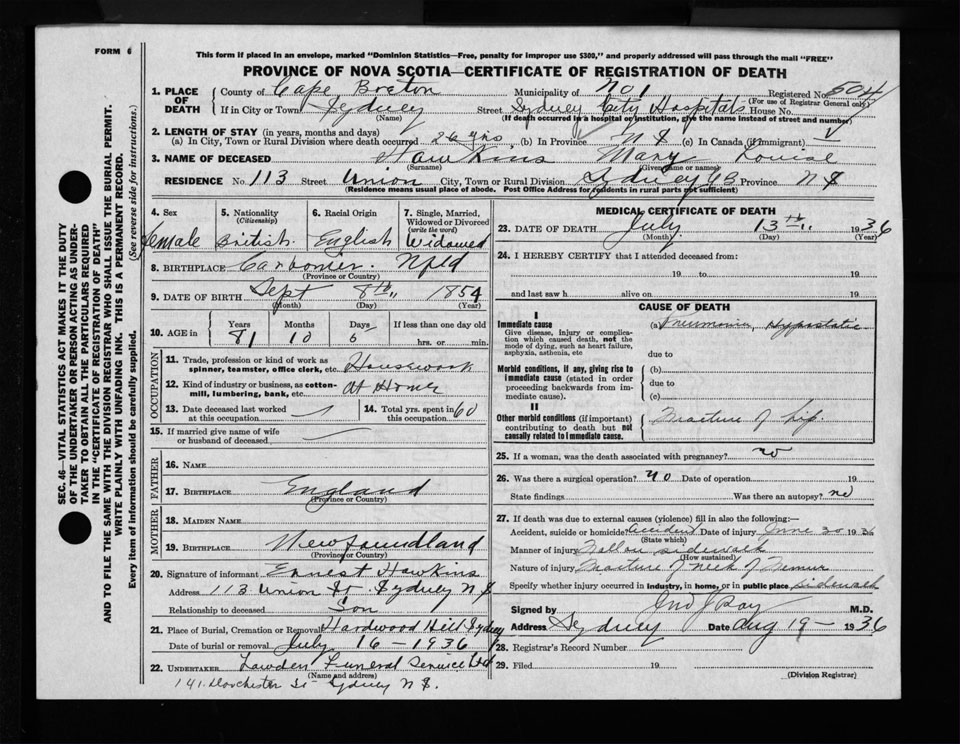 FORM 6
This form if placed in an envelope, marked "Dominion Statistics—Free, penalty for improper use $300," and properly addressed will pass through the mail "FREE"
PROVINCE OF NOVA SCOTIA—CERTIFICATE OF REGISTRATION OF DEATH
SEC. 46—VITAL STATISTICS ACT MAKES IT THE DUTY
OF THE UNDERTAKER OR PERSON ACTING AS UNDER-
TAKER TO OBTAIN ALL THE PARTICULARS REQUIRED
IN THE "CERTIFICATE OF REGISTRATION OF DEATH"
AND TO FILE THE SAME WITH THE DIVISION REGISTRAR WHO SHALL ISSUE THE BURIAL PERMIT.
WRITE PLAINLY WITH UNFADING INK. THIS IS A PERMANENT RECORD.
Every item of information should be carefully supplied. (See reverse side for instructions.)
1. PLACE OF DEATH
County of Cape Breton Municipality of No 1 Registered No. 504
(For use of Registrar General only)
If in City or Town Sydney Street Sydney City Hospital House No.
(Name) (If death occurred in a hospital or institution, give the name instead of street and number)
2. LENGTH OF STAY (in years, months and days)
(a) In City, Town or Rural Division where death occurred 26 yrs (b) In Province N S (c) In Canada (if immigrant)
3. NAME OF DECEASED Hawkins Mary Louise
(Surname) (Given name or names)
RESIDENCE No. 113 Street Union City, Town or Rural Division Sydney CB Province N S
(Residence means usual place of abode. Post Office Address for residents in rural parts not sufficient)
4. Sex
female
5. Nationality
(Citizenship)
British
6. Racial Origin
English
7. Single, Married, Widowed or Divorced
(write the word)
Widowed
8. BIRTHPLACE Carbonier Nfld
(Province or Country)
9. DATE OF BIRTH Sept 8th 1854
(Month) (Day) (Year)
10. AGE in
Years Months Days If less than one day old
81 10 5 hrs. or min.
OCCUPATION
11. Trade, profession or kind of work as
spinner, teamster, office clerk, etc. Housework
12. Kind of industry or business, as cotton-
mill, lumbering, bank, etc. At Home
13. Date deceased last worked
at this occupation
14. Total yrs. spent in
this occupation 60
15. If married give name of wife
or husband of deceased
FATHER
16. NAME
17. BIRTHPLACE England
(Province or Country)
MOTHER
18. MAIDEN NAME
19. BIRTHPLACE Newfoundland
(Province or Country)
20. Signature of informant Ernest Hawkins
Address 113 Union St. Sydney N S
Relationship to deceased Son
21. Place of Burial, Cremation or Removal Hardwood Hill Sydney
Date of burial or removal July 16 - 1936
22. UNDERTAKER Lawden Funeral Service Ltd
(Name and address)
141 Dorchester St Sydney N S.
MEDICAL CERTIFICATE OF DEATH
23. DATE OF DEATH July 13th 1936
(Month) (Day) (Year)
24. I HEREBY CERTIFY that I attended deceased from:
19 to 19
and last saw h alive on 19
CAUSE OF DEATH
I
Immediate cause
Give disease, injury or complica-
tion which caused death, not the
mode of dying, such as heart failure,
asphyxia, asthenia, etc
(a) Pneumonia, Hypostatic
due to
Morbid conditions, if any, giving rise to
immediate cause (stated in order
proceeding backwards from im-
mediate cause).
(b)
due to
(c)
II
Other morbid conditions (if important)
contributing to death but not
causally related to immediate cause.
Fracture of hip.
25. If a woman, was the death associated with pregnancy? no
26. Was there a surgical operation? no Date of operation 19
State findings Was there an autopsy? no
27. If death was due to external causes (violence) fill in also the following:—
Accident, suicide or homicide? Accident Date of injury June 30 1936
(State which)
Manner of injury Fell on sidewalk
(How sustained)
Nature of injury Fracture of neck of Femur
Specify whether injury occurred in industry, in home, or in public place sidewalk
Signed by M.D.
Address Sydney Date Aug 19 - 1936
28. Registrar's Record Number
29. Filed 19
(Division Registrar)